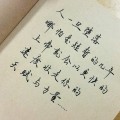 人一旦堕落
哪怕是短暂的几年
上帝就会以更快的
速度收走你的
天赋与力量